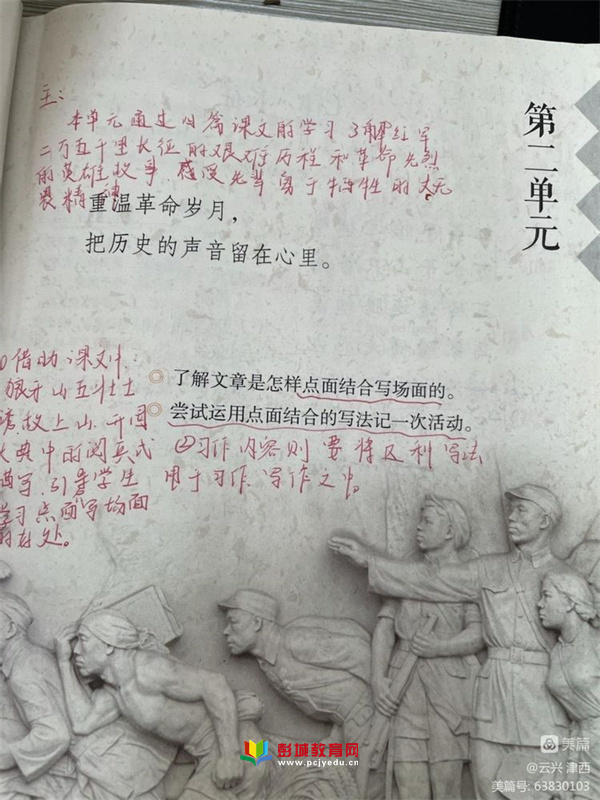 第二单元
主：
本单元通过四篇课文的学习了解红军
二万五千里长征的艰难历程和革命先烈
的英雄故事，感受先辈勇于牺牲的大无
畏精神
重温革命岁月，
把历史的声音留在心里。
借助课文中
狼牙山五壮士
上山、开国
大典中的阅兵式
写，引导学生
学习点面写场面
好处。
了解文章是怎样点面结合写场面的。
尝试运用点面结合的写法记一次活动。
②习作内容则要将这种写法
用于习作写作之中。
彭城教育网
www.pcjyedu.cn
美篇
@云兴 津西
美篇号: 63830103